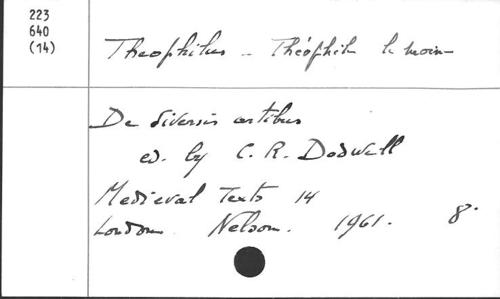 223
640
(14)
Theophilus - Théophile le moine
De diversis artibus
ed. by C. R. Dodwell
Medieval Texts 14
London. Nelson. 1961. 8°